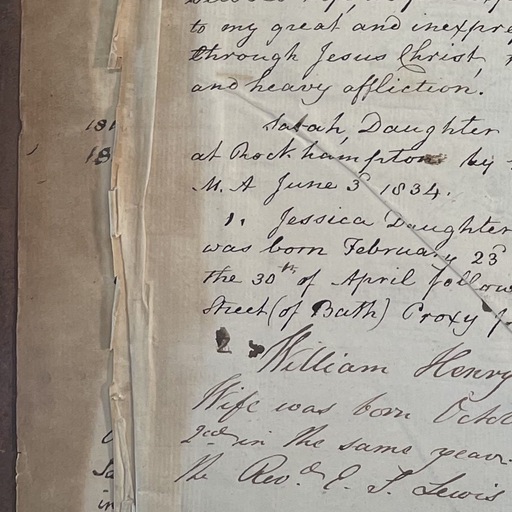 to my great and inexpre
through Jesus Christ,
and heavy affliction.
181
Sarah, Daughter
18
at Rockhampton by
M. A June 3 1834.
1. Jessica Daughter
was born February 23
the 30th of April follow
Street (of Bath) Proxy f
2 William Henry
Wife was born Octo
2nd in the same year.
the Revd. E. T. Lewis
in